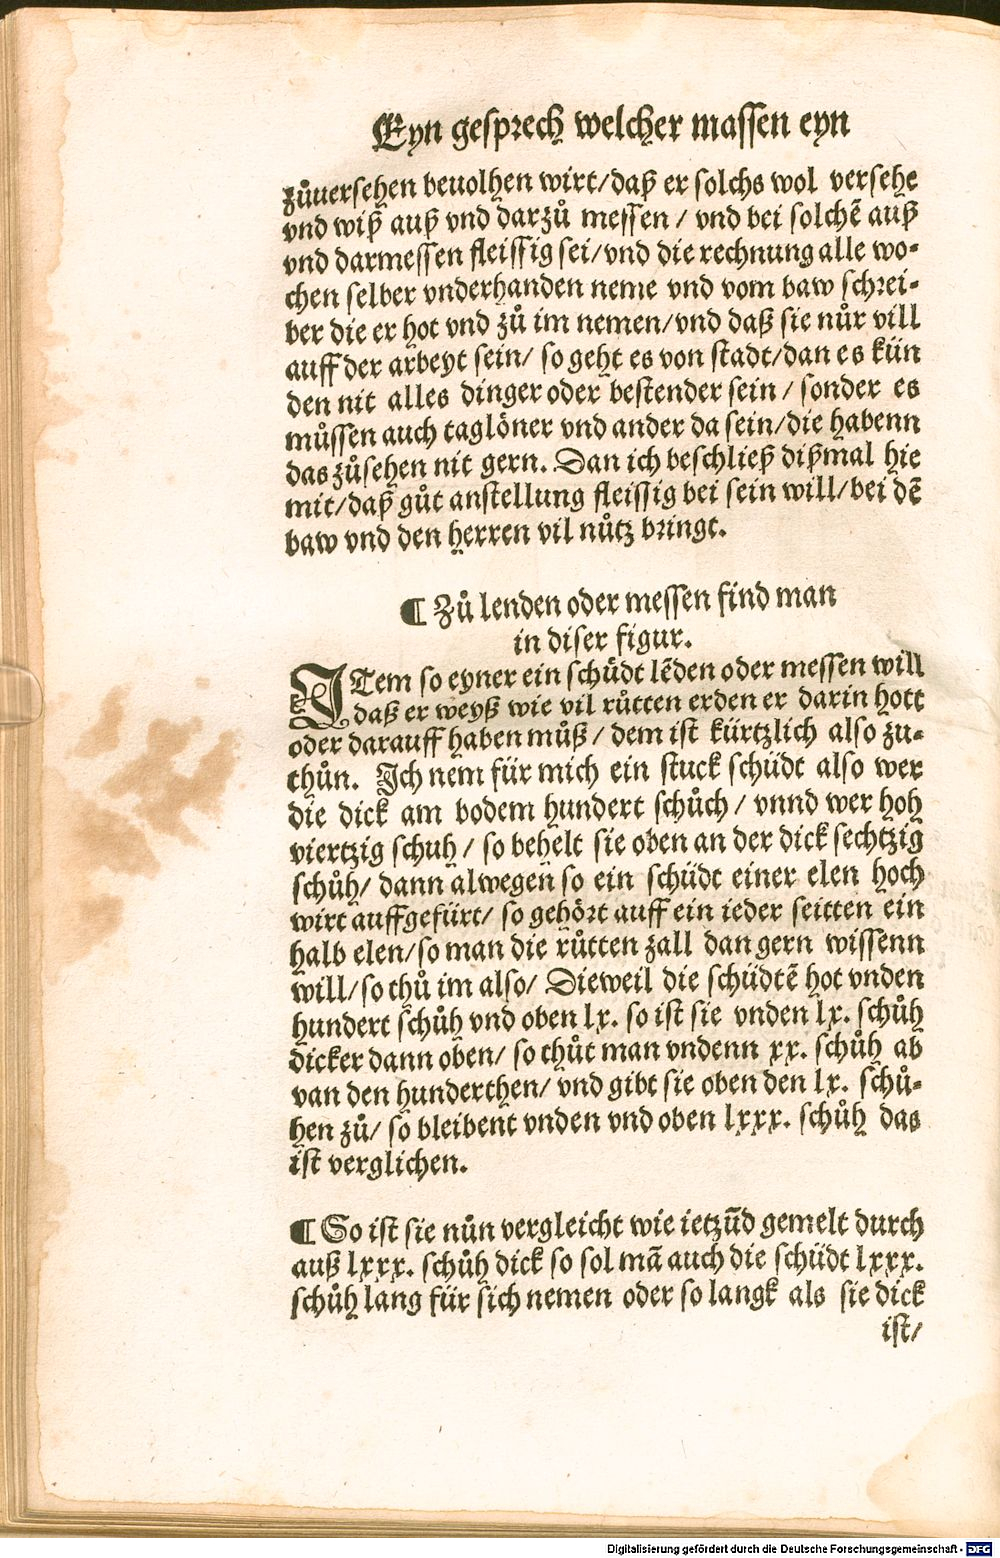 Eyn gesprech welcher massen eyn
zůuersehen beuolhen wirt/daß er solchs wol versehe
vnd wiß auß vnd darzů messen / vnd bei solchē auß
vnd darmessen fleissig sei/vnd die rechnung alle wo-
chen selber vnderhanden neme vnd vom baw schrei-
ber die er hot vnd zů im nemen/vnd daß sie nůr vill
auff der arbeyt sein/ so geht es von stadt/dan es kün
den nit alles dinger oder bestender sein / sonder es
můssen auch taglöner vnd ander da sein/die habenn
das zůsehen nit gern. Dan ich beschließ dißmal hie
mit/daß gůt anstellung fleissig bei sein will/bei dē
baw vnd den herren vil nůtz bringt.
¶ Zů lenden oder messen find man
in diser figur.
ITem so eyner ein schüdt lēden oder messen will
daß er weyß wie vil růtten erden er darin hott
oder darauff haben můß / dem ist kürtzlich also zu-
thůn. Ich nem für mich ein stuck schüdt also wer
die dick am bodem hundert schůch / vnnd wer hoh
viertzig schuh / so behelt sie oben an der dick sechtzig
schůh/ dann alwegen so ein schüdt einer elen hoch
wirt auffgefürt/ so gehört auff ein ieder seitten ein
halb elen/so man die růtten zall dan gern wissenn
will/so thů im also/ Dieweil die schüdtē hot vnden
hundert schůh vnd oben lx. so ist sie vnden lx. schůh
dicker dann oben/ so thůt man vndenn xx. schůh ab
van den hunderthen/ vnd gibt sie oben den lx. schů-
hen zů/ so bleibent vnden vnd oben lxxx. schůh das
ist verglichen.
¶ So ist sie nůn vergleicht wie ietzūd gemelt durch
auß lxxx. schůh dick so sol mā auch die schüdt lxxx.
schůh lang für sich nemen oder so langk als sie dick
ist/
Digitalisierung gefördert durch die Deutsche Forschungsgemeinschaft - DFG